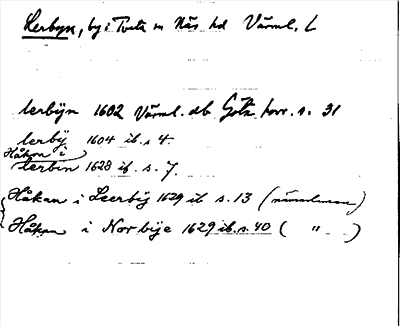 Lerbyn, by i Tveta sn Näs hd Värml. L
lerbÿn 1602 Värml. db Göta horr. s. 31
lerbÿ 1604 ib. s 4.
Håkon i
Lerbin 1628 ib. s. 7.
Håkan i Leerbÿ 1629 ib s. 13 (nämndeman)
Håkan i Norbije 1629 ib. s. 40 ( " )